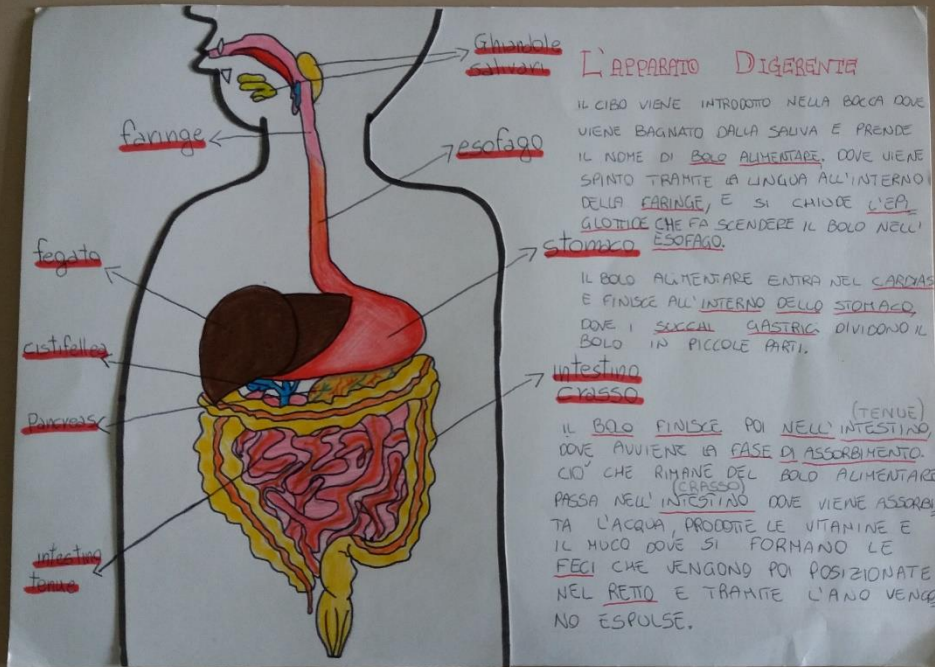 Ghiandole
salivari
faringe
esofago
fegato
stomaco
cistifellea
Pancreas
intestino
crasso
intestino
tenue
L'APPARATO DIGERENTE
IL CIBO VIENE INTRODOTTO NELLA BOCCA DOVE
VIENE BAGNATO DALLA SALIVA E PRENDE
IL NOME DI BOLO ALIMENTARE, DOVE VIENE
SPINTO TRAMITE LA LINGUA ALL'INTERNO
DELLA FARINGE, E SI CHIUDE L'EPI
GLOTTIDE CHE FA SCENDERE IL BOLO NELL'
ESOFAGO.
IL BOLO ALIMENTARE ENTRA NEL CARDIAS
E FINISCE ALL'INTERNO DELLO STOMACO,
DOVE I SUCCHI GASTRICI DIVIDONO IL
BOLO IN PICCOLE PARTI.
(TENUE)
IL BOLO FINISCE POI NELL'INTESTINO,
DOVE AVVIENE LA FASE DI ASSORBIMENTO.
CIO' CHE RIMANE DEL BOLO ALIMENTARE
(CRASSO)
PASSA NELL'INTESTINO DOVE VIENE ASSORBI
TA L'ACQUA, PRODOTTE LE VITAMINE E
IL MUCO DOVE SI FORMANO LE
FECI CHE VENGONO POI POSIZIONATE
NEL RETTO E TRAMITE L'ANO VENGO
NO ESPULSE.